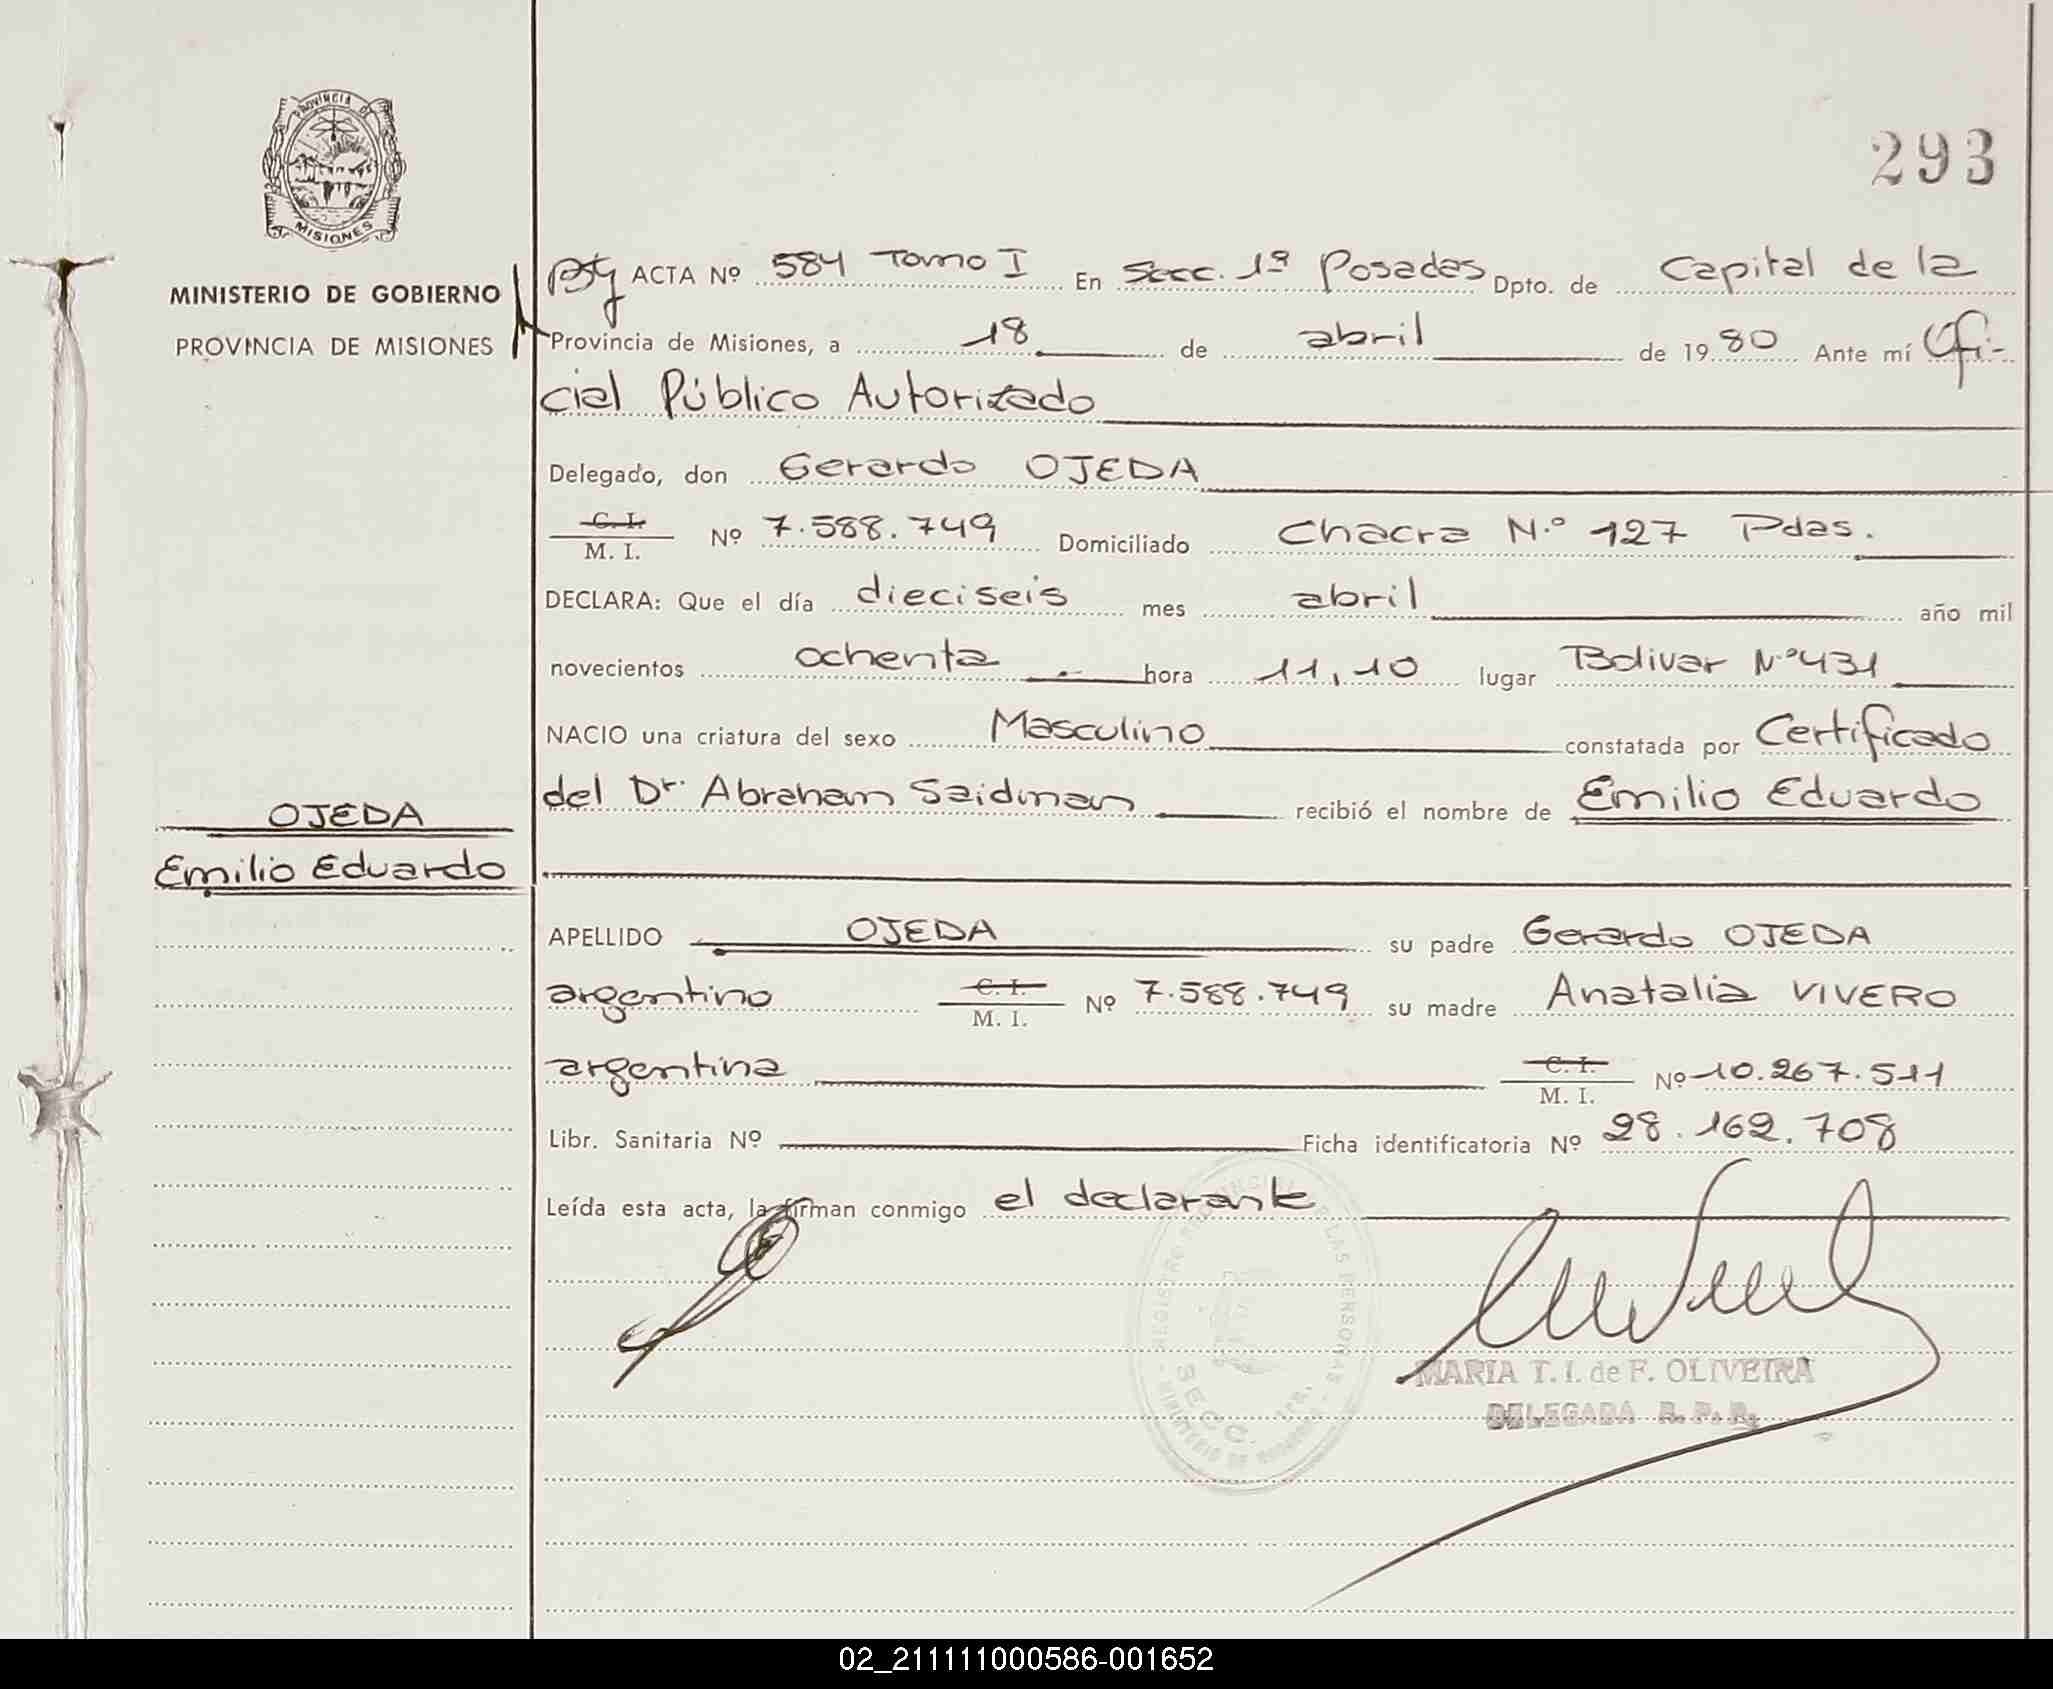 PROVINCIA DE
MISIONES
MINISTERIO DE GOBIERNO
PROVINCIA DE MISIONES
293
ACTA Nº 584 Tomo I En Secc. 1ª Posadas Dpto. de Capital de la
Provincia de Misiones, a 18 de abril de 1980 Ante mí Ofi-
cial Público Autorizado
Delegado, don Gerardo OJEDA
C. I.
M. I. Nº 7.588.749 Domiciliado Chacra N.º 127 Pdas.
DECLARA: Que el día dieciseis mes abril año mil
novecientos ochenta hora 11,10 lugar Bolivar Nº 431
NACIO una criatura del sexo Masculino constatada por Certificado
del Dr. Abraham Saidman recibió el nombre de Emilio Eduardo
OJEDA
Emilio Eduardo
APELLIDO OJEDA su padre Gerardo OJEDA
argentino C. I.
M. I. Nº 7.588.749 su madre Anatalia VIVERO
argentina C. I.
M. I. Nº 10.267.511
Libr. Sanitaria Nº Ficha identificatoria Nº 28.162.708
Leída esta acta, la firman conmigo el declarante
REGISTRO PROVINCIAL DE LAS PERSONAS
SECC. 1ra.
MINISTERIO DE GOBIERNO
MARIA T. I. de F. OLIVEIRA
DELEGADA R. P. P.
02_211111000586-001652